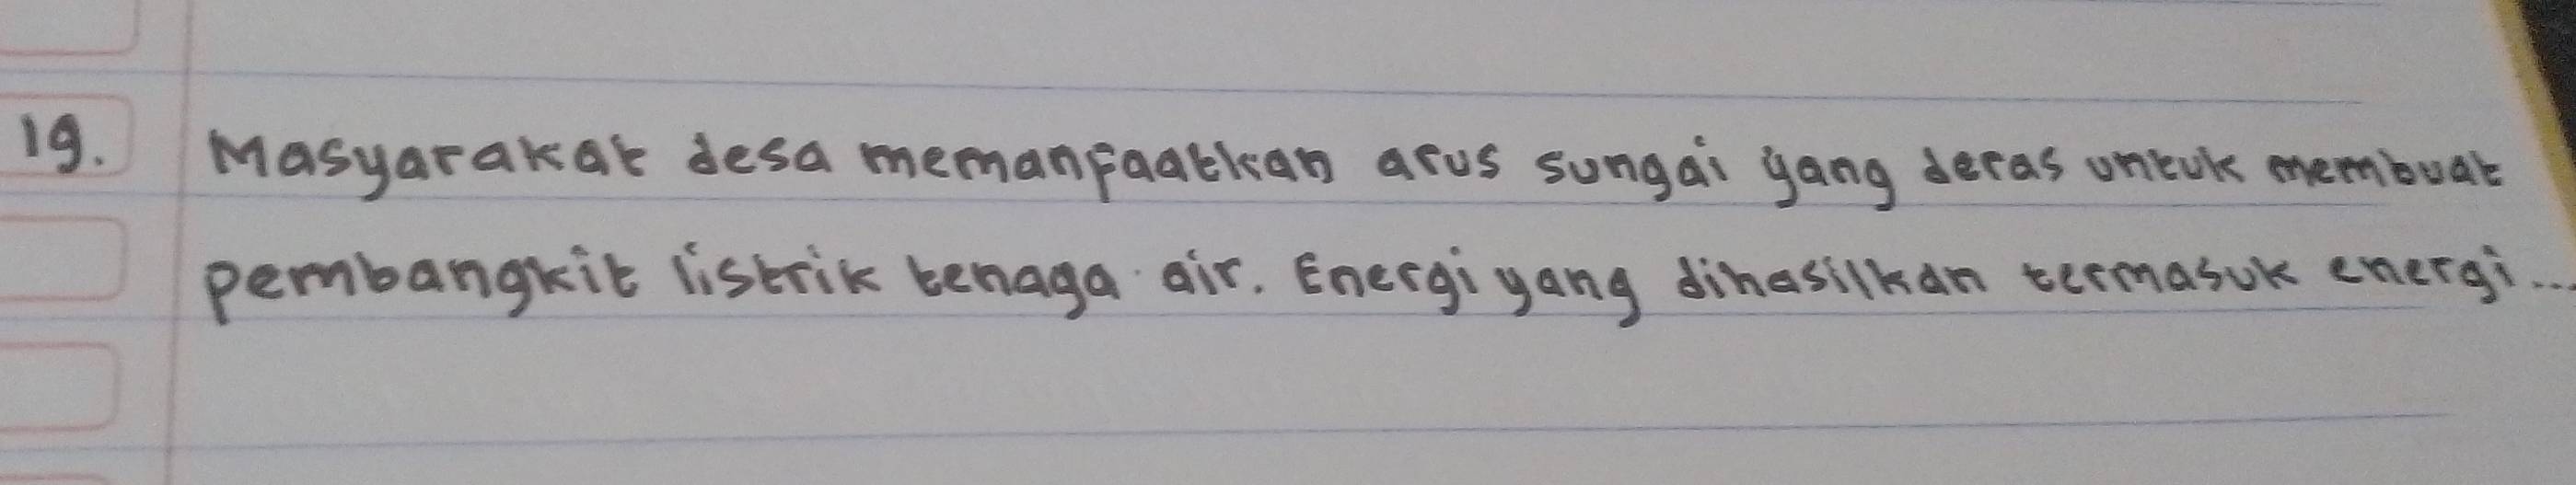 19. Masyarakat desa memanfaatkan arus sungai yang deras untuk membuat
pembangkit listrik tenaga air. Energi yang dihasilkan termasuk energi...